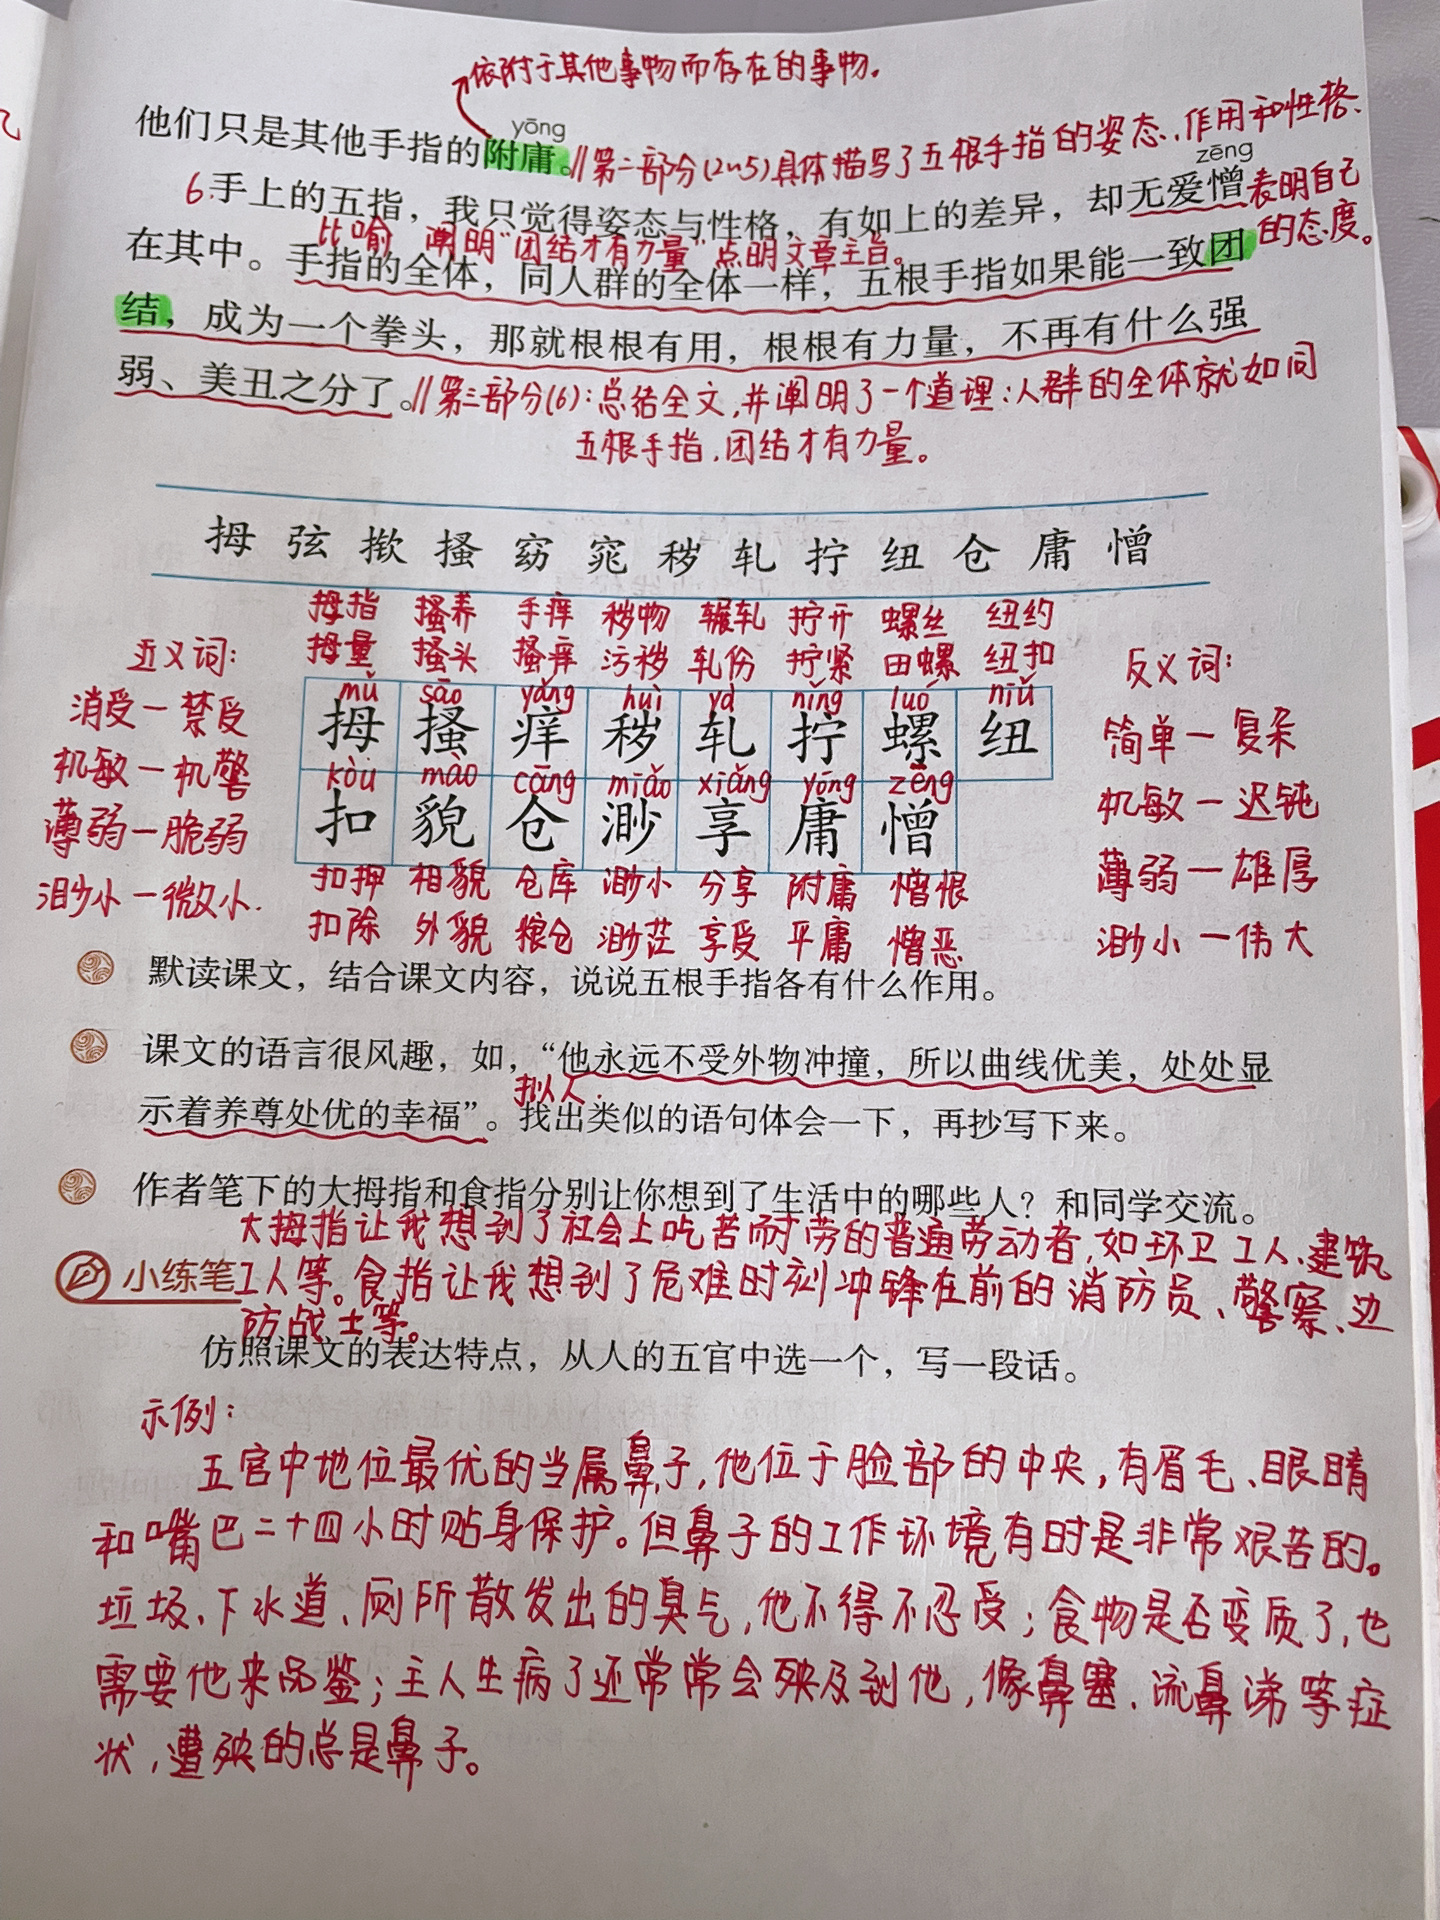 依附于其他事物而存在的事物。
yōng
他们只是其他手指的附庸。//第二部分(2~5)具体描写了五根手指的姿态、作用和性格.
zēng
6.手上的五指，我只觉得姿态与性格，有如上的差异，却无爱憎表明自己的态度。
比喻 阐明“团结才有力量”点明文章主旨。
在其中。手指的全体，同人群的全体一样，五根手指如果能一致团
结，成为一个拳头，那就根根有用，根根有力量，不再有什么强
弱、美丑之分了。//第三部分(6):总结全文,并阐明了一个道理:人群的全体就如同
五根手指,团结才有力量。
拇 弦 揿 搔 窈 窕 秽 轧 拧 纽 仓 庸 憎
拇指 搔养 手痒 秽物 辗轧 拧开 螺丝 纽约
近义词: 拇量 搔头 搔痒 污秽 轧伤 拧紧 田螺 纽扣 反义词:
mǔ sāo yǎng huì yà nǐng luó niǔ
消受—禁受 拇 搔 痒 秽 轧 拧 螺 纽 简单—复杂
机敏—机警 kòu mào cāng miǎo xiǎng yōng zēng 机敏—迟钝
薄弱—脆弱 扣 貌 仓 渺 享 庸 憎 薄弱—雄厚
渺小—微小. 扣押 相貌 仓库 渺小 分享 附庸 憎恨
扣除 外貌 粮仓 渺茫 享受 平庸 憎恶 渺小—伟大
默读课文，结合课文内容，说说五根手指各有什么作用。
课文的语言很风趣，如，“他永远不受外物冲撞，所以曲线优美，处处显
拟人.
示着养尊处优的幸福”。找出类似的语句体会一下，再抄写下来。
作者笔下的大拇指和食指分别让你想到了生活中的哪些人？和同学交流。
大拇指让我想到了社会上吃苦耐劳的普通劳动者,如环卫工人、建筑
小练笔 工人等。食指让我想到了危难时刻冲锋在前的消防员、警察、边
防战士等。
仿照课文的表达特点，从人的五官中选一个，写一段话。
示例:
五官中地位最优的当属鼻子,他位于脸部的中央,有眉毛、眼睛
和嘴巴二十四小时贴身保护。但鼻子的工作环境有时是非常艰苦的。
垃圾、下水道、厕所散发出的臭气,他不得不忍受;食物是否变质了,也
需要他来品鉴;主人生病了还常常会殃及到他,像鼻塞、流鼻涕等症
状,遭殃的总是鼻子。